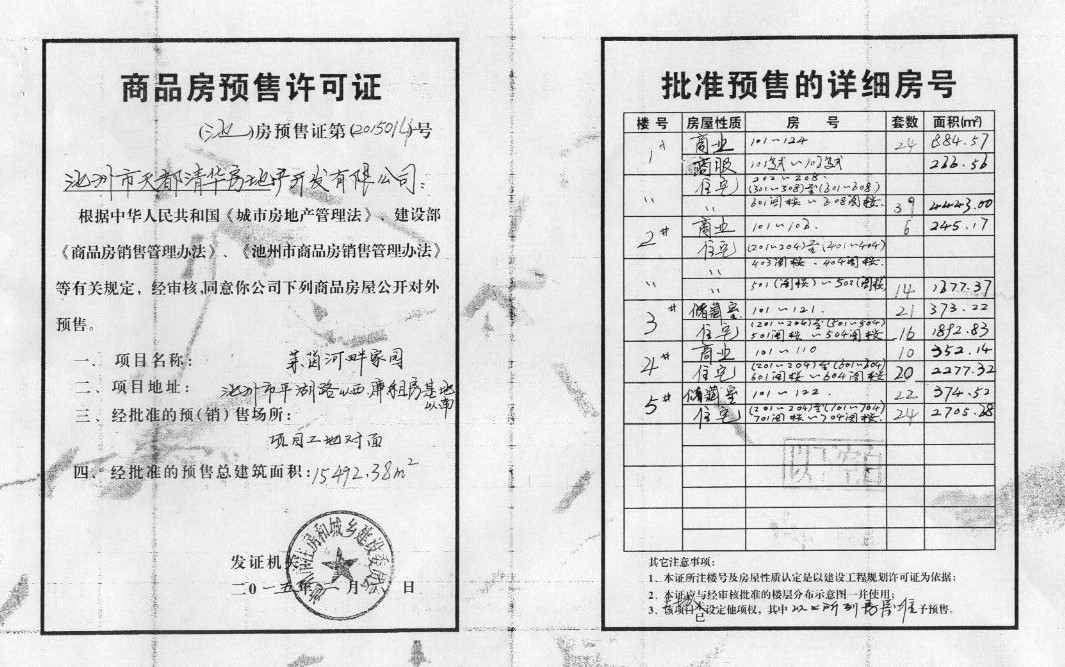 商品房预售许可证
(池)房预售证第(2015014)号
池州市天都清华房地产开发有限公司:
根据中华人民共和国《城市房地产管理法》、建设部
《商品房销售管理办法》、《池州市商品房销售管理办法》
等有关规定,经审核,同意你公司下列商品房屋公开对外
预售。
一、项目名称: 莱茵河畔家园
二、项目地址: 池州市平湖路以西廉租房基地以南
三、经批准的预(销)售场所:
项目工地对面
四、经批准的预售总建筑面积:15492.38m²
发证机关
二〇一五年 月 日
批准预售的详细房号
楼号 房屋性质 房号 套数 面积(m²)
1# 商业 101~124 24 884.57
商服 101复式~103复式 266.56
住宅 202~208.
(301~308)至(601~608)
〃 〃 601阁楼~608阁楼. 39 4443.00
2# 商业 101~103. 6 245.17
住宅 (201~204)至(401~404)
〃 403阁楼、404阁楼.
〃 〃 501(阁楼)~502(阁楼) 14 1377.37
3# 储藏室 101~121. 21 373.22
住宅 (201~204)至(501~504)
501阁楼~504阁楼 16 1892.83
4# 商业 101~110 10 352.14
住宅 (201~204)至(601~604)
601阁楼~604阁楼 20 2277.32
5# 储藏室 101~122. 22 374.52
住宅 (201~204)至(701~704)
701阁楼~704阁楼. 24 2705.28
以下空白
其它注意事项:
1、本证所注楼号及房屋性质认定是以建设工程规划许可证为依据;
2、本证应与经审核批准的楼层分布示意图一并使用;
3、该项目 已 设定他项权,其中以上所列房屋准予预售。